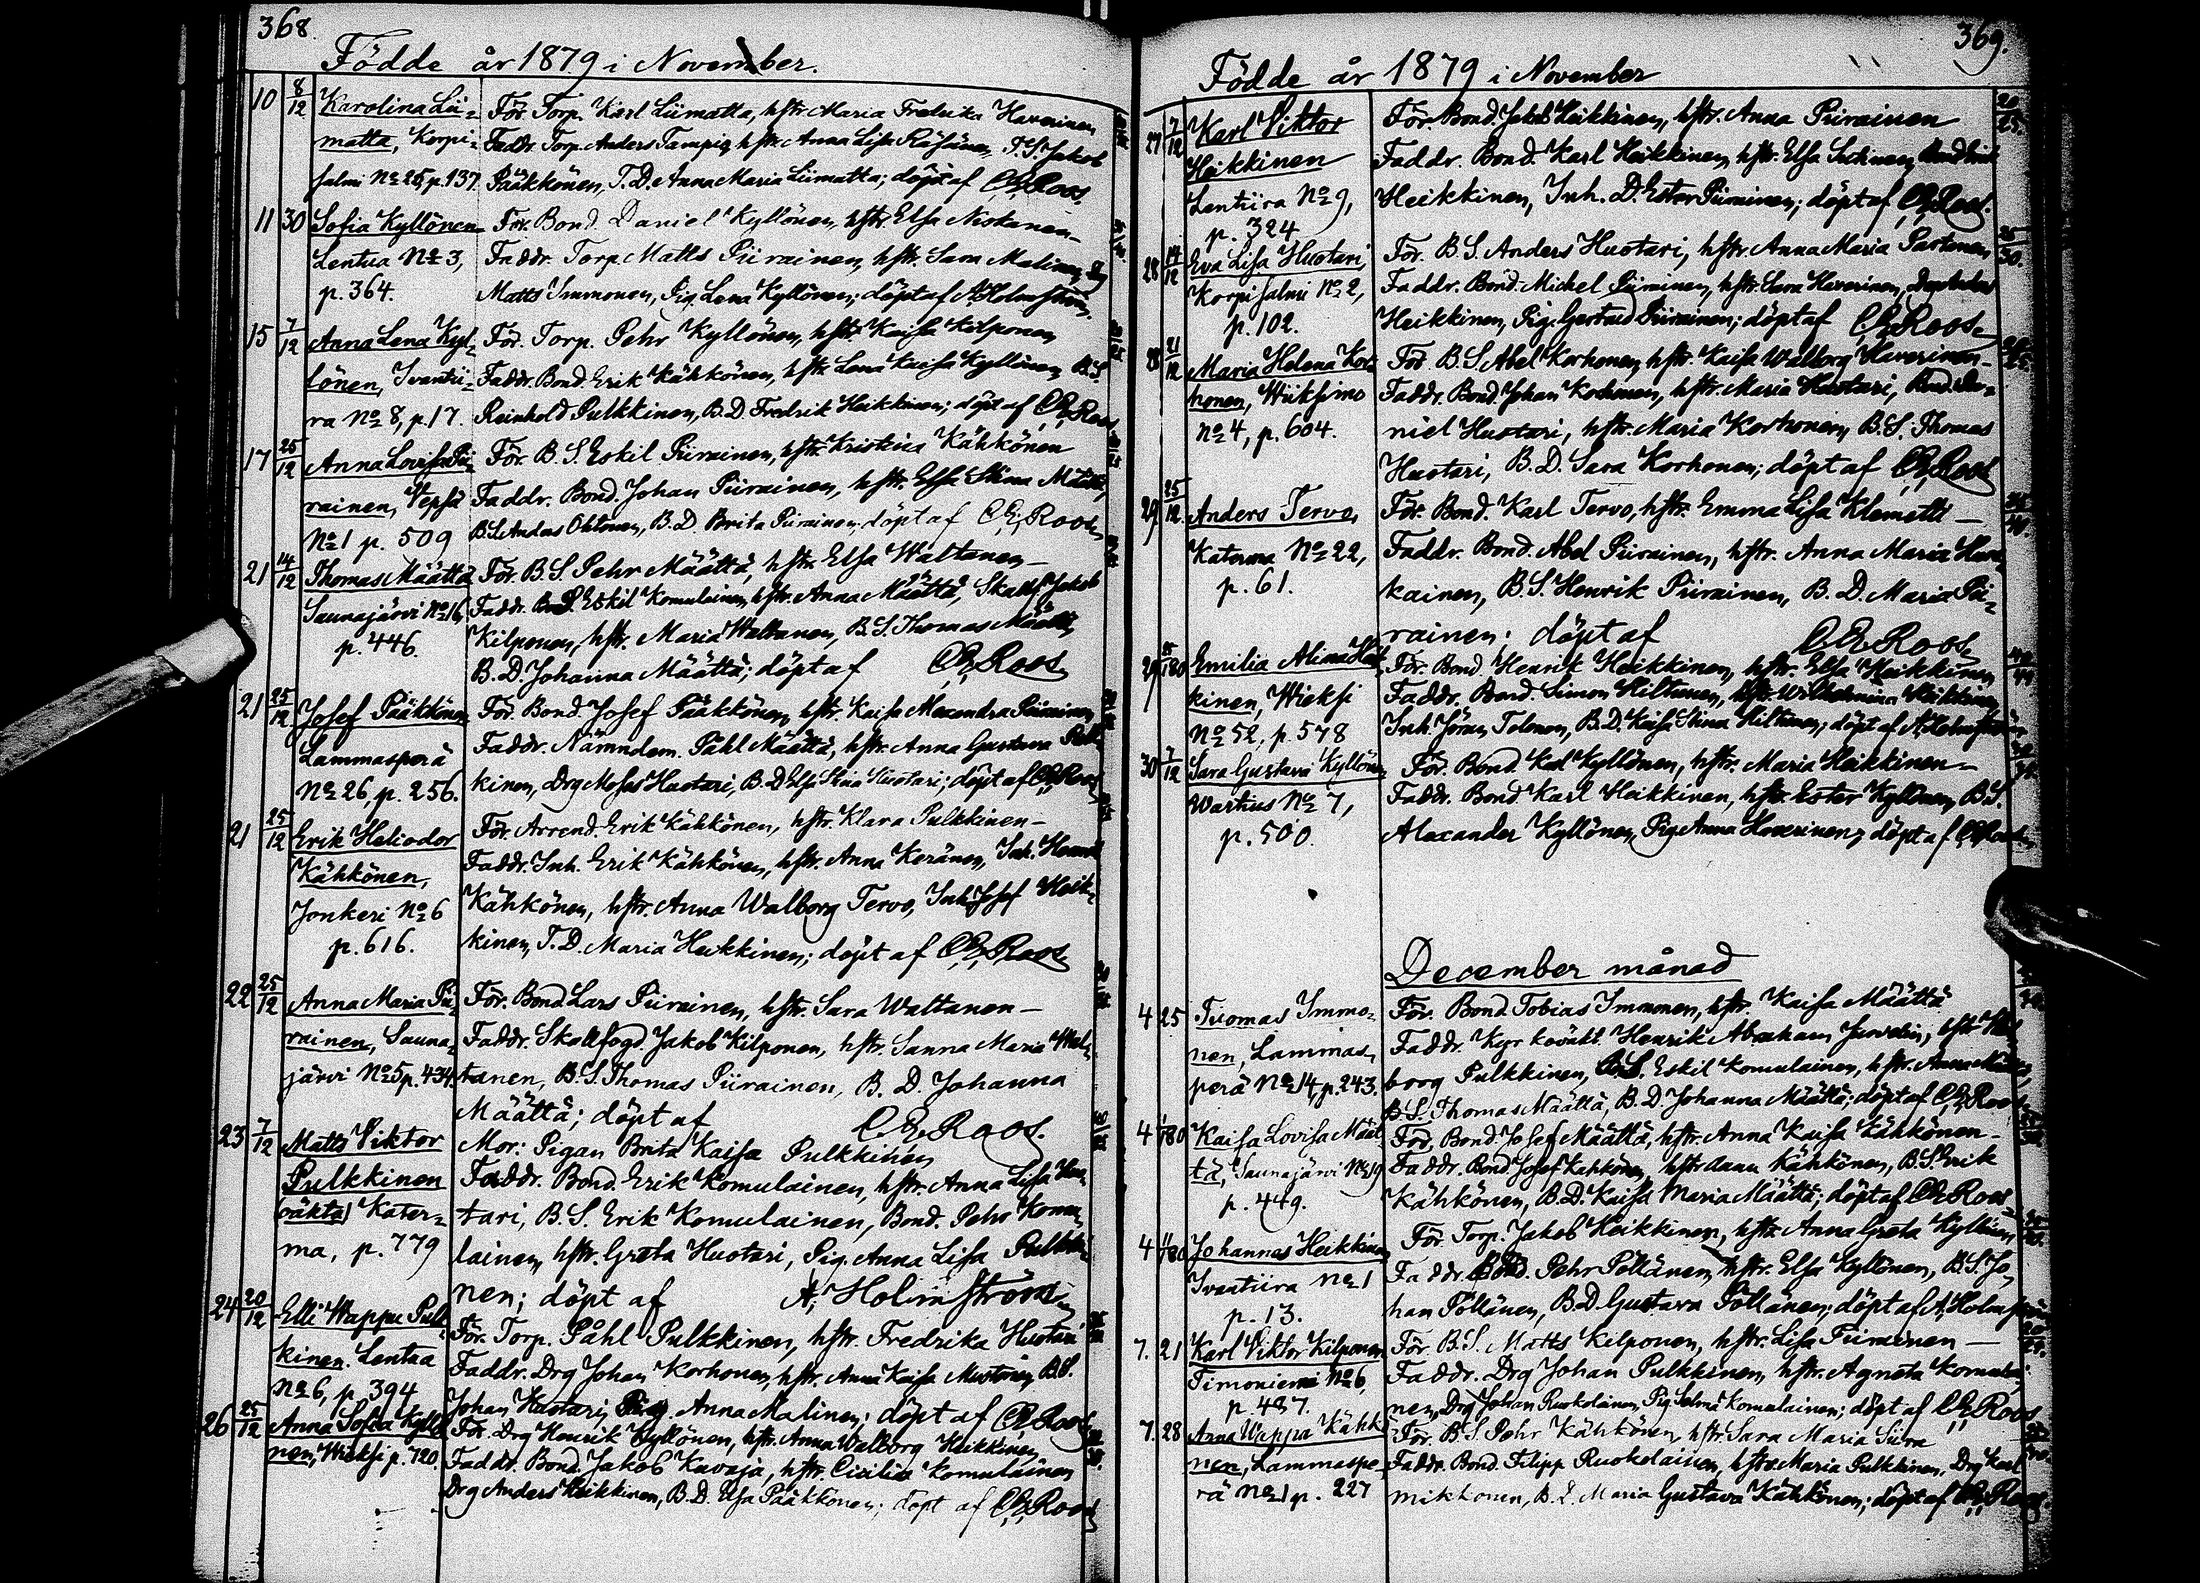 368.
Födde år 1879 i November.
10 8/12 Karolina Lii- För. Torp. Karl Liimatta, hstr. Maria Fredrika Haverinen
matta, Korpi- Faddr. Torp. Anders Tampio, hstr. Anna Lisa Räisänen, T.S. Jakob
salmi No 25, p. 137. Pääkkönen, T.D. Anna Maria Liimatta; döpt af C.E. Roos.
11 30 Sofia Kyllönen För. Bond. Daniel Kyllönen, hstr. Elsa Niskanen
Lentua No 3, Faddr. Torp. Matts Piirainen, hstr. Sara Malinen,
p. 364. Matts Immonen, Pig. Lena Kyllönen; döpt af A. Holmström.
15 7/12 Anna Lena Kyl- För. Torp. Pehr Kyllönen, hstr. Kaisa Kilponen
lönen, Ivantii- Faddr. Bond. Erik Kähkönen, hstr. Lena Kaisa Kyllönen, B.S.
ra No 8, p. 17. Reinhold Pulkkinen, B.D. Fredrik Heikkinen; döpt af C.E. Roos
17 25/12 Anna Lovisa Pii- För. B.S. Eskil Piirainen, hstr. Kristina Kähkönen
rainen, Vepsä Faddr. Bond. Johan Piirainen, hstr. Elsa Stina Määttä,
No 1 p. 509 B.S. Anders Ohtonen, B.D. Brita Piirainen; döpt af C.E. Roos
21 14/12 Thomas Määttä För. B.S. Pehr Määttä, hstr. Elsa Waltanen
Saunajärvi No 16, Faddr. B.S. Eskil Komulainen, hstr. Anna Määttä, Skattf. Jakob
p. 446. Kilponen, hstr. Maria Waltanen, B.S. Thomas Määttä,
B.D. Johanna Määttä; döpt af C.E. Roos
21 25/12 Josef Pääkkönen För. Bond. Josef Pääkkönen, hstr. Kaisa Alexandra Piirainen
Lammasperä Faddr. Nämndem. Påhl Määttä, hstr. Anna Gustava Pulk-
No 26, p. 256. kinen, Drg Moses Huotari, B.D. Elsa Stina Huotari; döpt af C.E. Roos
21 25/12 Erik Heliodor För. Arrend. Erik Kähkönen, hstr. Klara Pulkkinen
Kähkönen, Faddr. Inh. Erik Kähkönen, hstr. Anna Keränen, Inh. Henrik
Jonkeri No 6 Kähkönen, hstr. Anna Walborg Tervo, Inh. Josef Heik-
p. 616. kinen, T.D. Maria Heikkinen; döpt af C.E. Roos
22 25/12 Anna Maria Pii- För. Bond. Lars Piirainen, hstr. Sara Waltanen
rainen, Sauna- Faddr. Skattfogd. Jakob Kilponen, hstr. Sanna Maria Wal-
järvi No 5 p. 434. tanen, B.S. Thomas Piirainen, B.D. Johanna
Määttä; döpt af C.E. Roos.
23 7/12 Matts Viktor Mor: Pigan Brita Kaisa Pulkkinen
Pulkkinen Faddr. Bond. Erik Komulainen, hstr. Anna Lisa Huo-
(oäkta) Kater- tari, B.S. Erik Komulainen, Bond. Pehr Komu-
ma, p. 779 lainen, hstr. Greta Huotari, Pig. Anna Lisa Pulkki-
nen; döpt af A. Holmström
24 20/12 Elli Wappu Pulk- För. Torp. Påhl Pulkkinen, hstr. Fredrika Huotari
kinen. Lentua Faddr. Drg Johan Korhonen, hstr. Anna Kaisa Mustonen, B.S.
No 6, p. 394 Johan Huotari, Pig. Anna Malinen; döpt af C.E. Roos
26 25/12 Anna Sofia Kyllö- För. Drg Henrik Kyllönen, hstr. Anna Walborg Heikkinen
nen, Wieksi p. 720. Faddr. Bond. Jakob Kavaja, hstr. Cicilia Komulainen
Drg Anders Heikkinen, B.D. Elsa Pääkkönen; döpt af C.E. Roos
369.
Födde år 1879 i November
27 7/12 Karl Viktor För. Bond. Jakob Heikkinen, hstr. Anna Piirainen
Heikkinen Faddr. Bond. Karl Heikkinen, hstr. Elsa
Lentiira No 9, Heikkinen, Inh. D. Ester Piirainen; döpt af C.E. Roos.
p. 324
28 14/12 Eva Lisa Huotari, För. B.S. Anders Huotari, hstr. Anna Maria Partanen,
Korpisalmi No 2, Faddr. Bond. Michel Piirainen, hstr. Sara Haverinen,
p. 102. Heikkinen, Pig. Gertrud Piirainen; döpt af C.E. Roos
28 21/12 Maria Helena Kor- För. B.S. Abel Korhonen, hstr. Kaisa Walborg Haverinen
honen, Wiiksimo Faddr. Bond. Johan Korhonen, hstr. Maria Huotari, Bond. Da-
No 4, p. 604. niel Huotari, hstr. Maria Korhonen, B.S. Thomas
Huotari, B.D. Sara Korhonen; döpt af C.E. Roos
29 25/12 Anders Tervo, För. Bond. Karl Tervo, hstr. Emma Lisa Klemetti
Katerma No 22, Faddr. Bond. Abel Piirainen, hstr. Anna Maria
p. 61. kainen, B.S. Henrik Piirainen, B.D. Maria Pii-
rainen; döpt af C.E. Roos
29 /80 Emilia Alina Heik- För. Bond. Henrik Heikkinen, hstr. Elsa Heikkinen
kinen, Wieksi Faddr. Bond. Simon Hiltunen, hstr. Wilhelmina Heikkinen,
No 52, p. 578 Inh. Jöran Tolonen, B.D. Kaisa Stina Hiltunen; döpt af A. Holmström
30 7/12 Sara Gustava Kyllönen För. Bond. Karl Kyllönen, hstr. Maria Heikkinen
Wartius No 7, Faddr. Bond. Karl Heikkinen, hstr. Ester Kyllönen, B.S.
p. 500. Alexander Kyllönen, Pig. Anna Haverinen; döpt af C.E. Roos
December månad
4 25 Tuomas Immo- För. Bond. Tobias Immonen, hstr. Kaisa Määttä
nen, Lammas- Faddr. Kyrkovakt. Henrik Abraham Juvelin, hstr. Wal-
perä No 14, p. 243. borg Pulkkinen, B.S. Eskil Komulainen, hstr. Anna Määttä,
B.S. Thomas Määttä, B.D. Johanna Määttä; döpt af C.E. Roos
4 1/180 Kaisa Lovisa Määt- För. Bond. Josef Määttä, hstr. Anna Kaisa Kähkönen
tä, Saunajärvi No 19 Faddr. Bond. Josef Kähkönen, hstr. Anna Kähkönen, B.S. Erik
p. 449. Kähkönen, B.D. Kaisa Maria Määttä; döpt af C.E. Roos
4 /180 Johannes Heikkinen För. Torp. Jakob Heikkinen, hstr. Anna Greta Kyllönen,
Ivantiira No 1 Faddr. Bond. Pehr Pöllänen, hstr. Elsa Kyllönen, B.S. Jo-
p. 13. han Pöllänen, B.D. Gustava Pöllänen; döpt af A. Holmström
7. 21 Karl Viktor Kilponen För. B.S. Matts Kilponen, hstr. Lisa Piirainen
Timoniemi No 6, Faddr. Drg Johan Pulkkinen, hstr. Agneta Komulai-
p. 487. nen, Drg Johan Ruokolainen, Pig. Selma Komulainen; döpt af C.E. Roos
7. 28 Anna Wappu Kähkö- För. B.S. Pehr Kähkönen, hstr. Sara Maria Siira
nen, Lammaspe- Faddr. Bond. Filipp Ruokolainen, hstr. Maria Pulkkinen, Drg Karl
rä No 1 p. 227 Mikkonen, B.D. Maria Gustava Kähkönen; döpt af C.E. Roos.